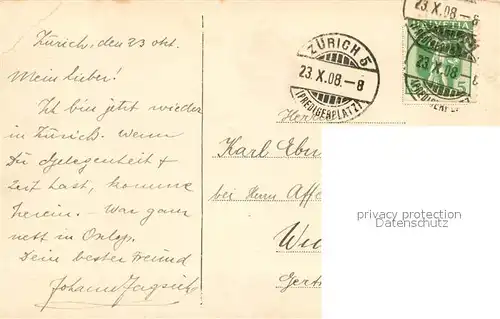 Zürich, den 23 okt.
Mein lieber!
Ich bin jetzt wieder
in Zürich. Wenn
Du Gelegenheit +
Zeit hast, komme
herein. - War ganz
nett in
Dein bester Freund
Johann
ZÜRICH 5
23.X.08.-8
(PREDIGERPLATZ)
HELVETIA
23.X.08.-8
Herrn
Karl
bei Herrn
privacy protection
Datenschutz